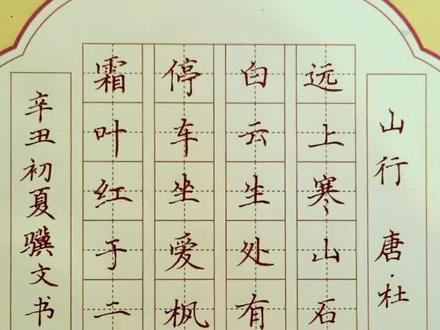 山行 唐·杜
远上寒山石
白云生处有
停车坐爱枫
霜叶红于二
辛丑初夏骥文书